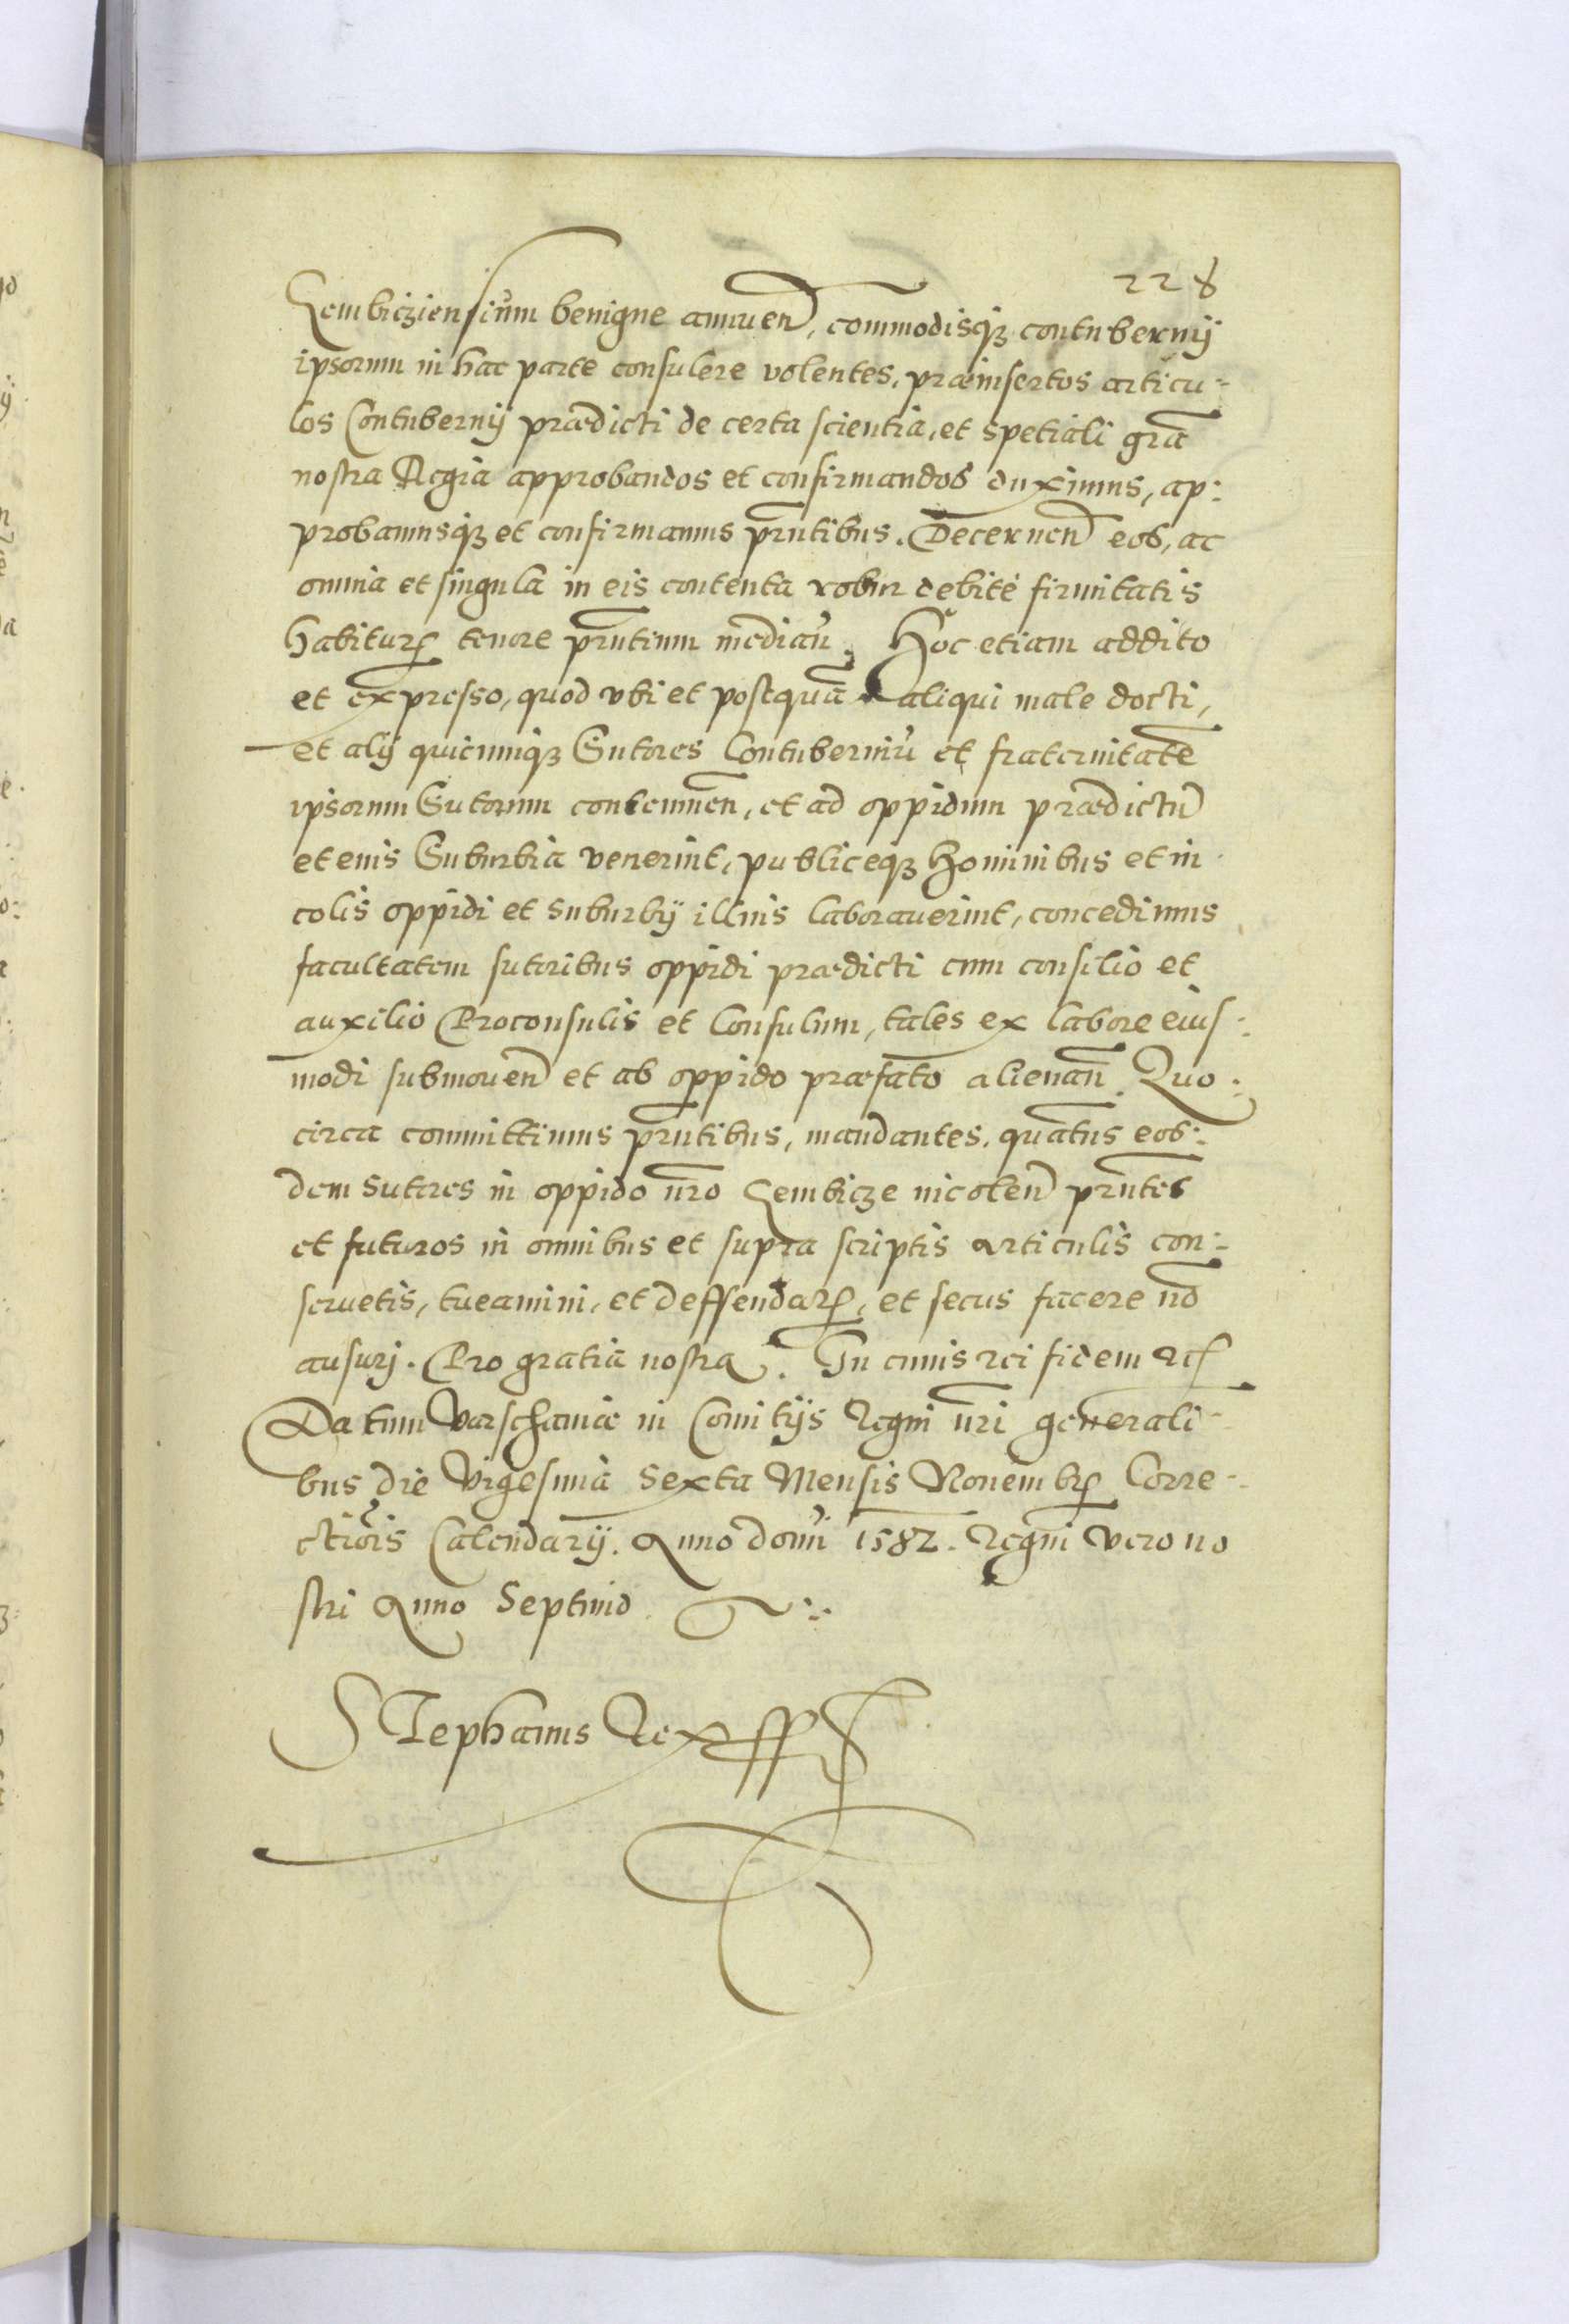 228
Gembicziensium benigne annuen̄, commodisq₃ contubernij
ipsorum in hac parte consulere volentes, præinsertos articu-
los Contubernij prædicti de certa scientia, et spetiali grā
nostra Regia approbandos et confirmandos duximus, ap:
probamusq₃ et confirmamus pn̄tibus. Decernen̄ eos, ac
omnia et singula in eis contenta robur debite firmitatis
habitur̄ tenore pn̄tium median̄. Hoc etiam addito
et expresso, quod vbi et postquā aliqui male docti,
et alij quicunq₃ Sutores Contuberniū et fraternitatē
ipsorum Sutorum contemnen̄, et ad oppidum prædictū
et eius Suburbia venerint, publiceq₃ hominibus et in
colis oppidi et suburbij illius laborauerint, concedimus
facultatem sutoribus oppidi prædicti cum consilio et
auxilio Proconsulis et Consulum, tales ex labore eius:
modi submouen̄ et ab oppido præfato alienan̄. Quo:
circa committimus pn̄tibus, mandantes, quatn̄us eos:
dem sutores in oppido nr̄o Gembicze incolen̄ pn̄tes
et futuros in omnibus et supra scriptis articulis con:
seruetis, tueamini, et deffendatȷs, et secus facere nō
ausuri. Pro gratia nostra. In cuius rei fidem etc̄
Datum Varschauiæ in Comitijs Regni nr̄i generali-
bus die Vigesima Sexta Mensis Nouembr̄ Corre-
ctiōis Calendarij. Anno domi 1582. Regni vero no
stri Anno Septimo
Stephanus Rex ss